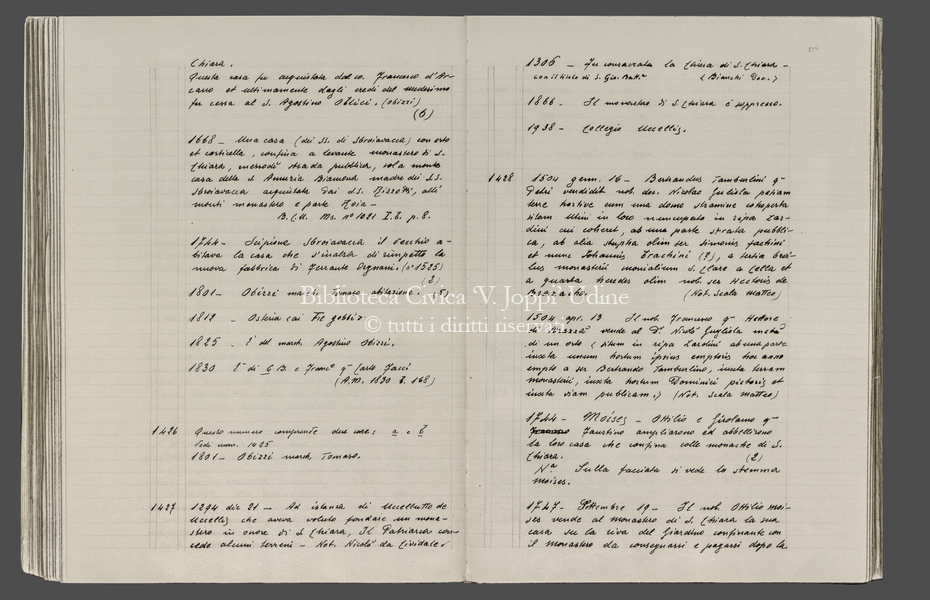 Chiara.
Questa casa fu acquistata dal co. Francesco d'Ar-
cano et ultimamente dagli eredi del medesimo
fu cessa al S. Agostino Obicci. (Obizzi)
(6)
1668 - Una casa (dei SS. di Sbroiavacca) con orto
et corticella, confina a levante monastero di S.
Chiara, menodì strada pubblica, sol a monte
casa della S. Annuzia madre dei SS.
Sbroiavacca acquistata dai SS. alli
monti monastero e parte Roia -
B.C.U. Ms. n° 1021 p. 8.
1744 - Scipione Sbroiavacca il vecchio a-
bitava la casa che s'inalza di rimpetto la
nuova fabbrica di Ferrante Dragnani. (n° 1525)
(2)
1801 - Obizzi march. Tomaso, abitazione (5)
1812 - Osteria ai Tre gobbi
1825 - È del march. Agostino Obizzi.
1830 È di G.B. e Franc° q. Carlo Facci
(A.M. 1830 168)
1426 Questo numero comprende due case; a e b
Vedi num. 1425
1801 - Obizzi march. Tomaso.
1427 1294 die 21 - Ad istanza di Uccellutto de
Uccellis che aveva voluto fondare un mona-
stero in onore di S. Chiara, Il Patriarca con-
cede alcuni terreni - Not. Nicolò da Cividale
1306 - Fu consacrata la Chiesa di S. Chiara -
con il titolo di S. Gio. Batt.a (Bianchi Doc.)
1866 - Il monastero di S. Chiara è soppresso.
1938 - Collegio Uccellis.
1428 1504 genn. 16 - Bertrandus Tamburlini q.
Petri vendidit nob. des. Nicolao Guliola petiam
terre hortive cum una domo stramine cohoperta
sitam Utini in loco nuncupato in ripa Zar-
dini cui coheret, ab una parte strata pubbli-
ca, ab alia stupha olim ser Simonis fachini
et nunc Iohannis Trachini (?), a tertia bro-
lus monasterii monialium S. Clare a Cella et
a quarta heredes olim nob. ser Hectoris de
Brazacho. (Not. Scala Matteo)
1504 apr. 13 Il nob. Francesco q. Hettore
di Brazzà vende al D. Nicolò Gugliola metà
di un orto (situm in ripa Zardini ab una parte
iuxta unum hortum ipsius emptoris hoc anno
empto a ser Bertrando Tamburlino, iuxta terram
monasterii, iuxta hortum Dominici pictoris et
iuxta viam publicam.) (Not. Scala Matteo)
1744 - Moises - Ottilio e Girolamo q.
Faustino ampliarono ed abbellirono
la loro casa che confina colle monache di S.
Chiara. (2)
N.a Sulla facciata si vede lo stemma
Moises.
1747 - Settembre 19 - Il nob. Ottilio Moi-
ses vende al monastero di S. Chiara la sua
casa su la riva del Giardino confinante con
il monastero da consegnarsi e pagarsi dopo la
Biblioteca Civica 'V. Joppi' Udine
© tutti i diritti riservati